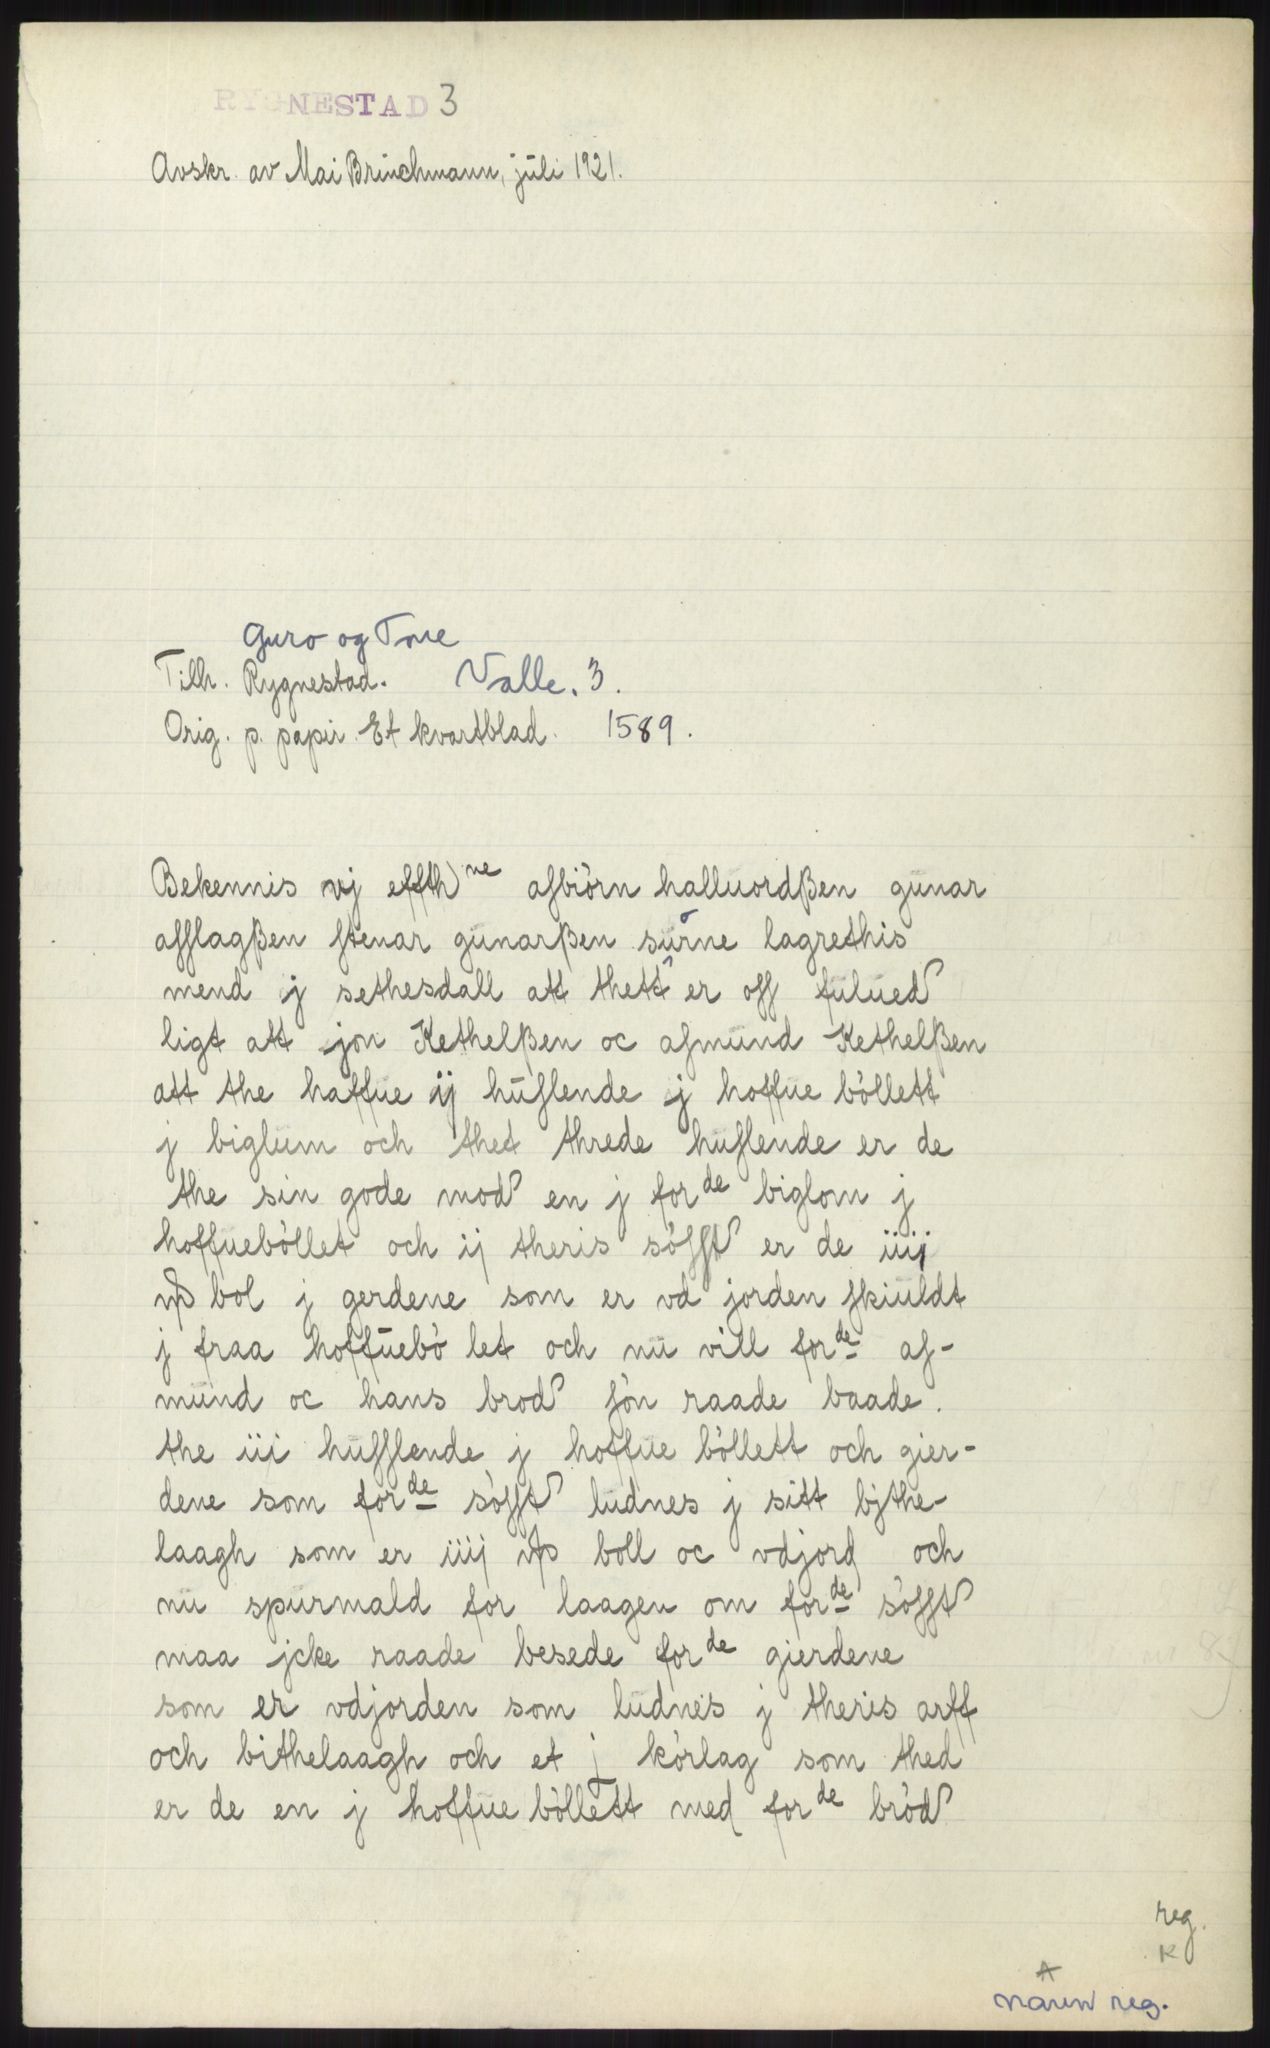 RYGNESTAD 3
Avskr. av Mai Brinchmann, juli 1921.
Guro og Tone
Tilh. Rygnestad. Valle. 3.
Orig. p. papir. Et kvartblad. 1589.
Bekennis vj effth ne asbiörn halluordßen gunar
afflagßen stenar gunarßen surne lagrethis
mend j sethesdall att thett er off fulued
ligt att jon Kethelßen oc asmund Kethelßen
att the haffue ij huslende j hoffue böllett
j biglum och thet threde huslende er de
the sin gode mod en j forde biglom j
hoffueböllet och ij theris söfft er de iiij
bol j gerdene som er vd jorden skiuldt
j fraa hoffuebö let och nu vill forde as-
mund oc hans brod sön raade baade.
the iii hufflende j hoffue böllett och gier-
dene som forde söfft ludnes j sitt bjthe-
laagh som er iiij boll oc vdjord och
nu spurmald for laagen om forde söfft
maa jcke raade besede forde gierdene
som er vdjorden som ludnes j theris arff
och bithelaagh och et j körlag som thed
er de en j hoffue böllett med forde bröd
reg.
K
A
navn reg.